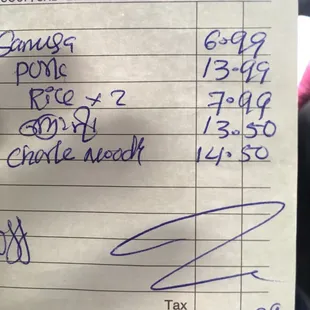 Sanusa 6.99
Pork 13.99
Rice x 2 7.99
13.50
Charle noodl 14.50
off
Tax